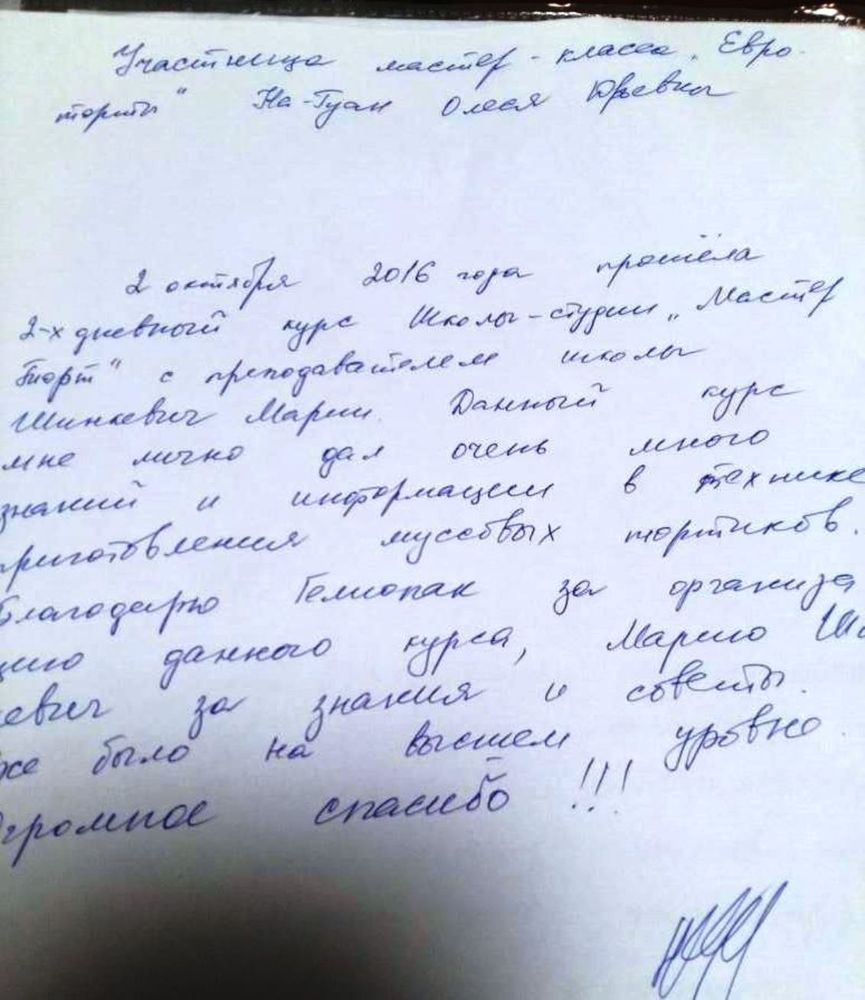 Участница мастер-класса „Евро-
торты" На-Гуан Олеся Юрьевна
2 октября 2016 года прошёла
2-х дневный курс Школы-студии „Мастер
Торт" с преподавателем школы
Шинкевич Марии. Данный курс
мне лично дал очень много
знаний и информации в технике
приготовления муссовых тортиков.
Благодарю Гелиопак за организа
цию данного курса, Марию Ши
кевич за знания и советы.
же было на высшем уровне.
Огромное спасибо !!!